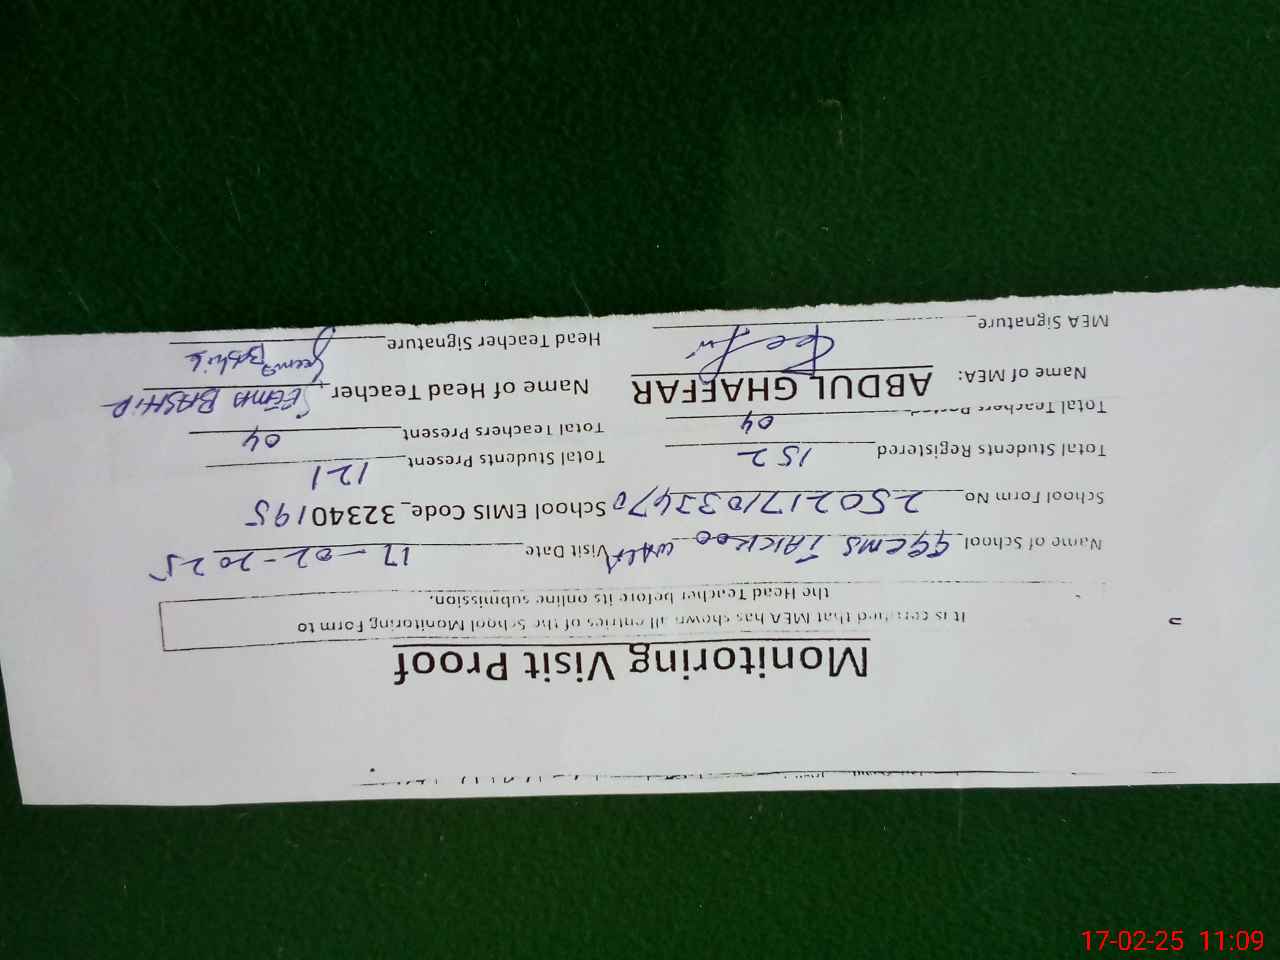 Monitoring Visit Proof
It is certified that MEA has shown all entries of the School Monitoring Form to
the Head Teacher before its online submission.
Name of School GGCMS TAKKOO WALA Visit Date 17-02-2025
School Form No 2502171033470 School EMIS Code_32340195
Total Students Registered 152 Total Students Present 121
Total Teachers Posted 04 Total Teachers Present 04
Name of MEA: ABDUL GHAFFAR Name of Head Teacher SEEMA BASHIR
MEA Signature Head Teacher Signature Seema Bashir
17-02-25 11:09